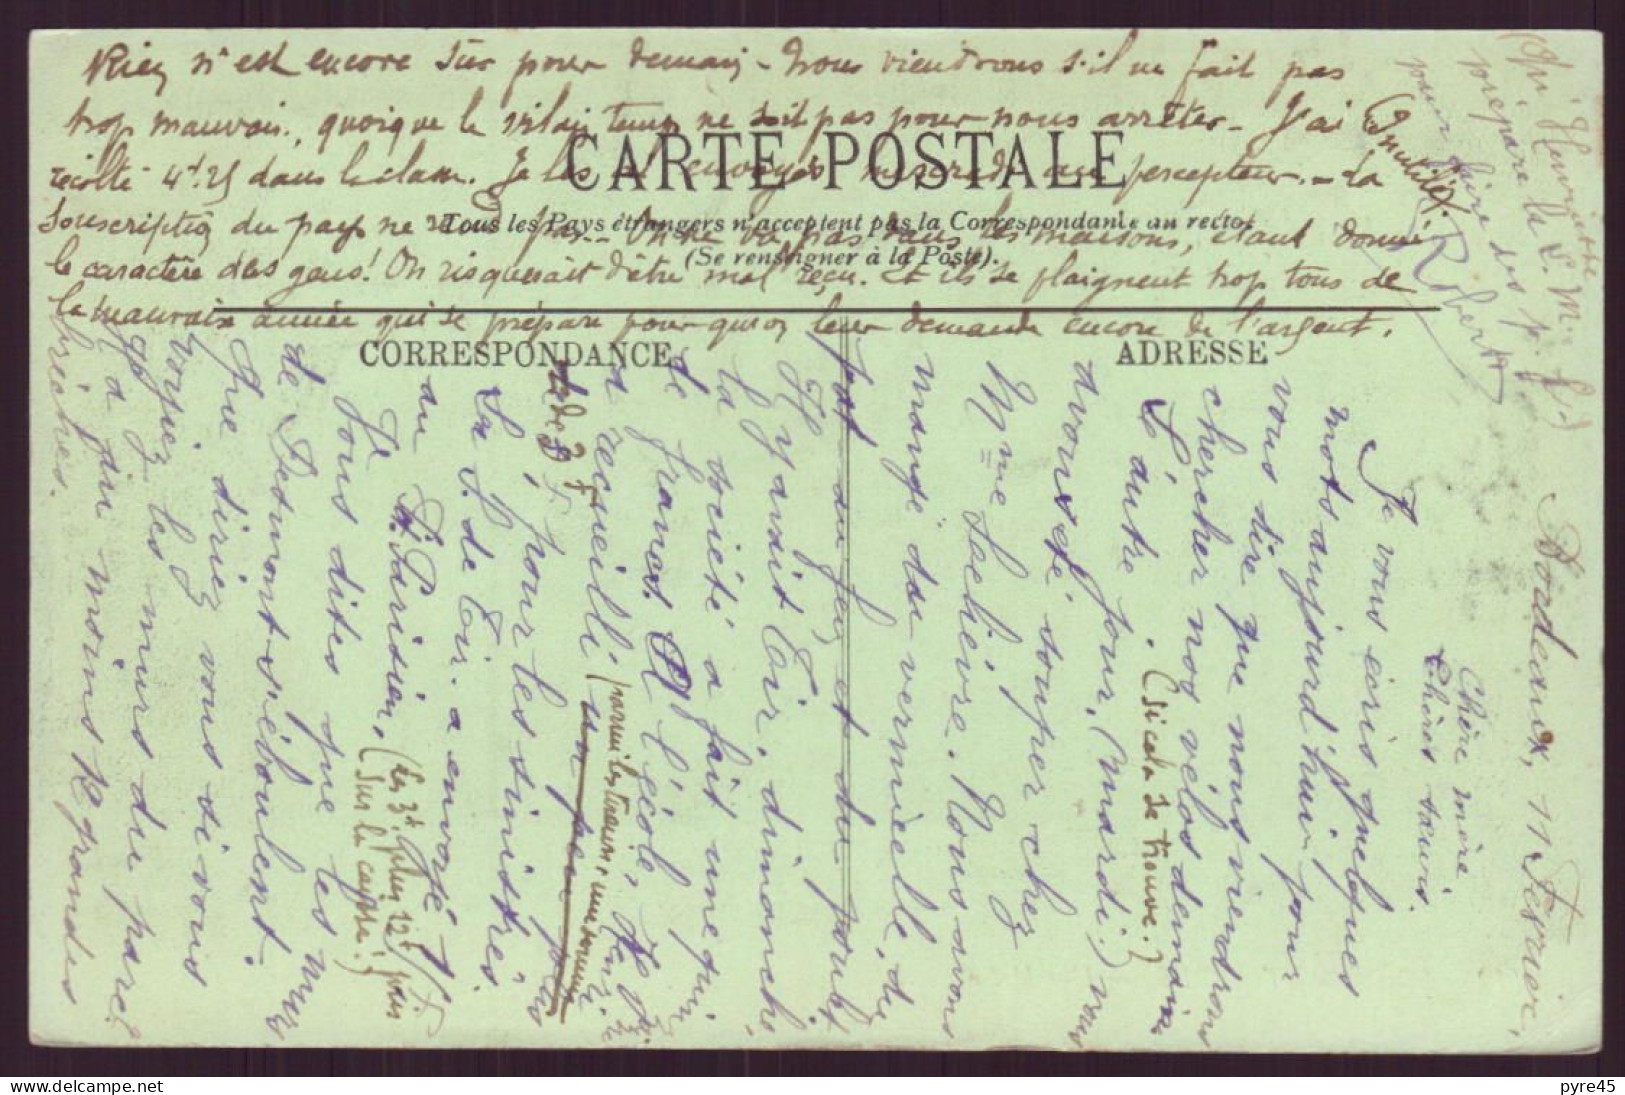 Bordeaux, 11 Février,
Chère mère
Chères sœurs.
Je vous écris quelques
mots aujourd'hui pour
vous dire que nous viendrons
chercher nos vélos demain
(si cela se trouve.)
L'autre jour, (mardi.) nous
avons été souper chez
Mme Lechièvre. Nous avons
mangé du vermicelle, du
pot au feu et du poulet
Il y avait Tir, dimanche,
la société a fait une quin
de francs. Et l'école,
a recueilli un peu plus
(parmi les tireurs, une bonne
de 2 F
pour les sinistrés.
La S. de Tir. a envoyé
au P. Parisien,
(les 3f. plus 12f pris
sur la cagne.)
Je vous dites que les murs
de Pesmont s'éboulent.
Que diriez vous si vous
voyiez les murs du parc
y a au moins 10 grandes
brèches.
Rien n'est encore sûr pour demain - Nous viendrons s'il ne fait pas
trop mauvais, quoique le vilain temps ne soit pas pour nous arrêter - J'ai
récolté 4f.25 dans la classe. Je les ai envoyés mercredi au percepteur. - La
souscription du pays ne On ne va pas dans les maisons, étant donné
le caractère des gens! On risquerait d'être mal reçu. Et ils se plaignent trop tous de
la mauvaise année qui se prépare pour qu'on leur demande encore de l'argent.
(Inutile).
Robert
(Qu'Henriette
prépare la L. M.
pour faire des p. f.)
CARTE POSTALE
Tous les Pays étrangers n'acceptent pas la Correspondance au recto.
(Se renseigner à la Poste).
CORRESPONDANCE
ADRESSE
pyre45